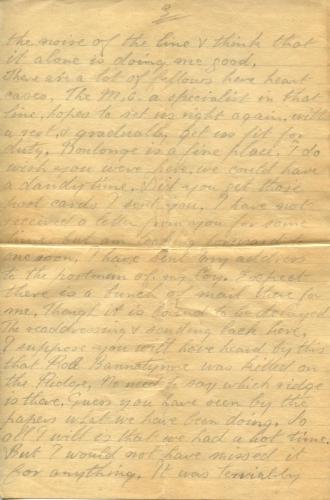 2
the noise of the line & think that
it alone is doing me good.
There are a lot of fellows here heart
cases. The M.O. a specialist in that
line, hopes to set us right again, with
a rest, & gradually get us fit for
duty. Boulonge is a fine place. I do
wish you were here, we could have
a dandy time. Did you get those
post cards I sent you. I have not
received a letter from you for some
time but am
one soon. I have sent my address
to the postman of my Coy. Expect
there is a bunch of mail there for
me. Though it is bound to be delayed
The readdressing & sending back here.
I suppose you will have heard by this
that Rob Bannatynne was killed on
the Ridge, No need to say which ridge
is there. Guess you have seen by the
papers what we have been doing. So
all I will is that we had a hot time.
But I would not have missed it
for anything. It was terribly